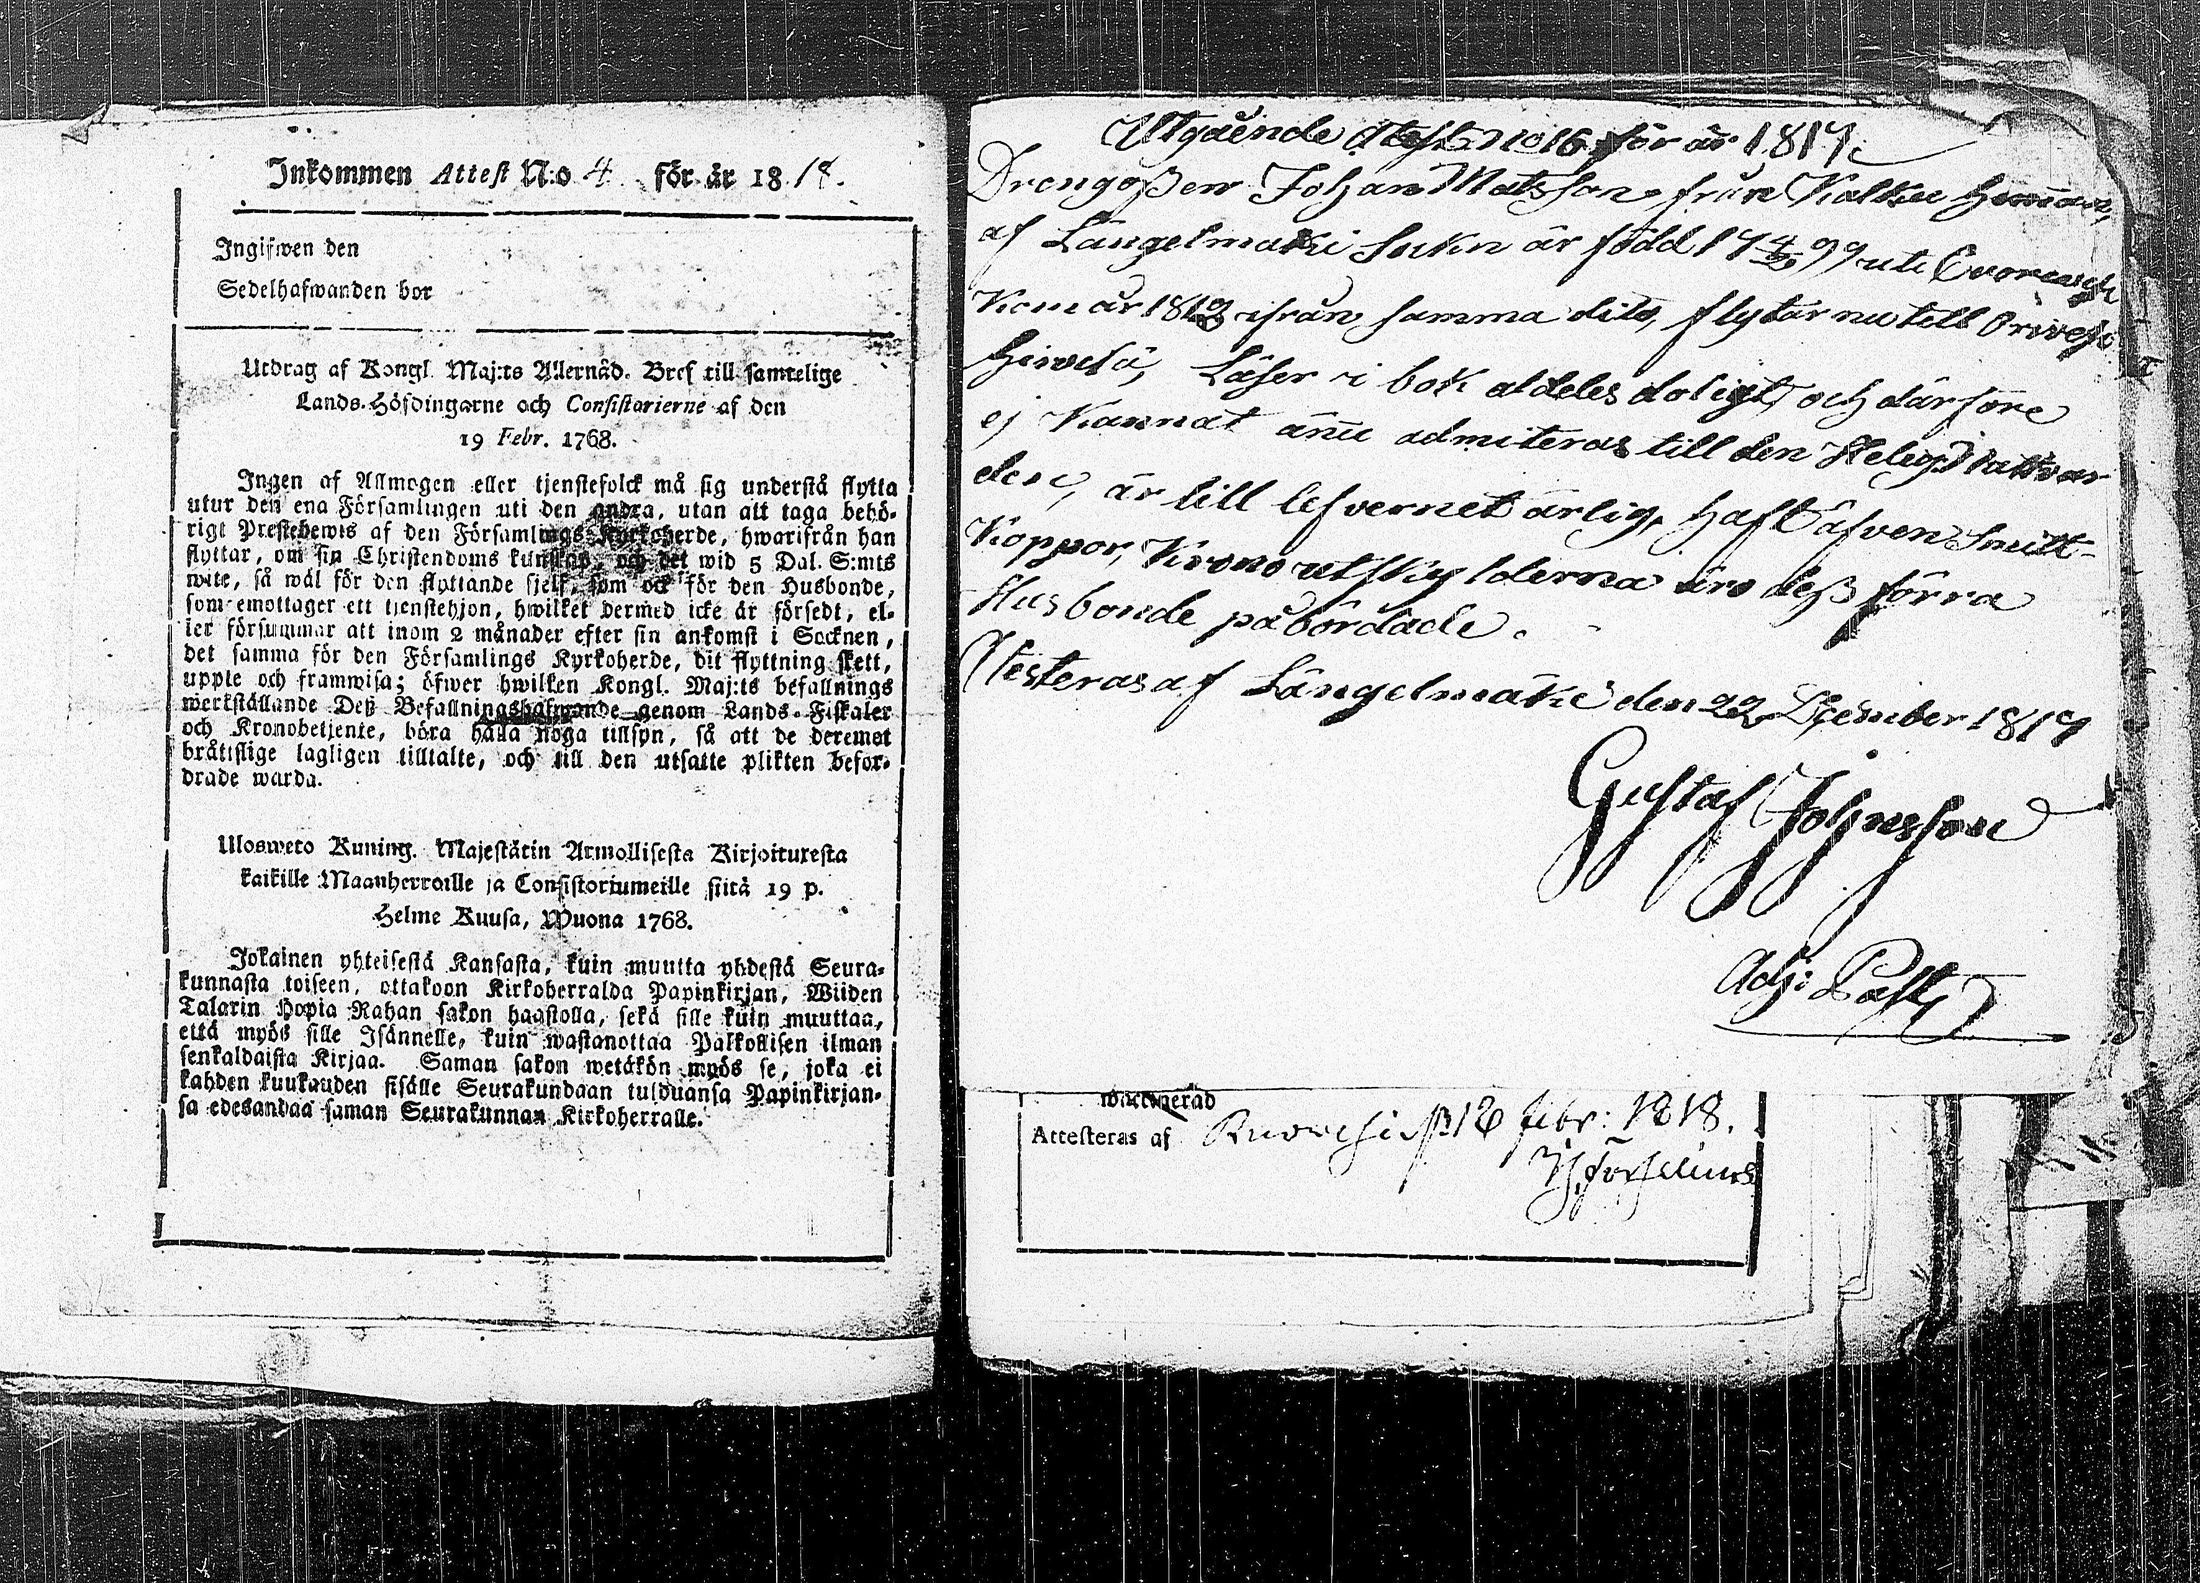 Inkommen Attest N:o 4 för år 1818.
Ingifwen den
Sedelhafwanden bor
Utdrag af Kongl. Maj:ts Allernåd. Bref till samtelige
Lands-Höfdingarne och Consistorierne af den
19 Febr. 1768.
Ingen af Allmogen eller tjenstefolck må sig understå flytta
utur den ena Församlingen uti den andra, utan att taga behö-
rigt Prestebewis af den Församlings Kyrkoherde, hwarifrån han
flyttar, om sin Christendoms kunskap, och det wid 5 Dal. S:mts
wite, så wäl för den flyttande sjelf, som ock för den Husbonde,
som emottager ett tjenstehjon, hwilket dermed icke är försedt, el-
ler försummar att inom 2 månader efter sin ankomst i Socknen,
det samma för den Församlings Kyrkoherde, dit flyttning skett,
uppte och framwisa; öfwer hwilken Kongl. Maj:ts befallnings
werkställande Deß Befallningshafwande genom Lands-Fiskaler
och Kronobetjente, böra hålla noga tillsyn, så att de deremot
bråtislige lagligen tilltalte, och till den utsatte plikten befor-
drade warda.
Ulosweto Kuning. Majestätin Armollisesta Kirjoituresta
kaikille Maanherroille ja Consistoriumeille siitä 19 p.
Helme Kuusa, Wuona 1768.
Jokainen yhteisestä Kansasta, kuin muutta yhdestä Seura-
kunnasta toiseen, ottakoon Kirkoherralda Papinkirjan, Wiiden
Talarin Hopia Rahan sakon haastolla, sekä sille kuin muuttaa,
että myös sille Isännelle, kuin wastanottaa Palkollisen ilman
senkaldaista Kirjaa. Saman sakon wetäkön myös se, joka ei
kahden kuukauden sisälle Seurakundaan tulduansa Papinkirjan-
sa edesandaa saman Seurakunnan Kirkoherralle.
Utgåénde Attest No 16 för år 1817.
Drengoßen Johan Matsson från Kalku Heman,
af Längelmäki Sukn är född 17 4/2 99 uti
Kom år 181 ifrån samma dito, flytar nu till Orivesi
Hirvesä, Läser i bok aldeles doligt, och därföre
ej Kannat ännu admiteras till den Helig Nattvar
den, är till lefvernet ärlig, haft äfven Smitt-
Koppor, Krono utskylderna äro deß förra
Husbonde påbördade.
Atesteras af Längelmäki den 22 December 1817
Gustaf Johnsson
Adj: Past
Attesteras af Ruovesi 18 febr: 1818.